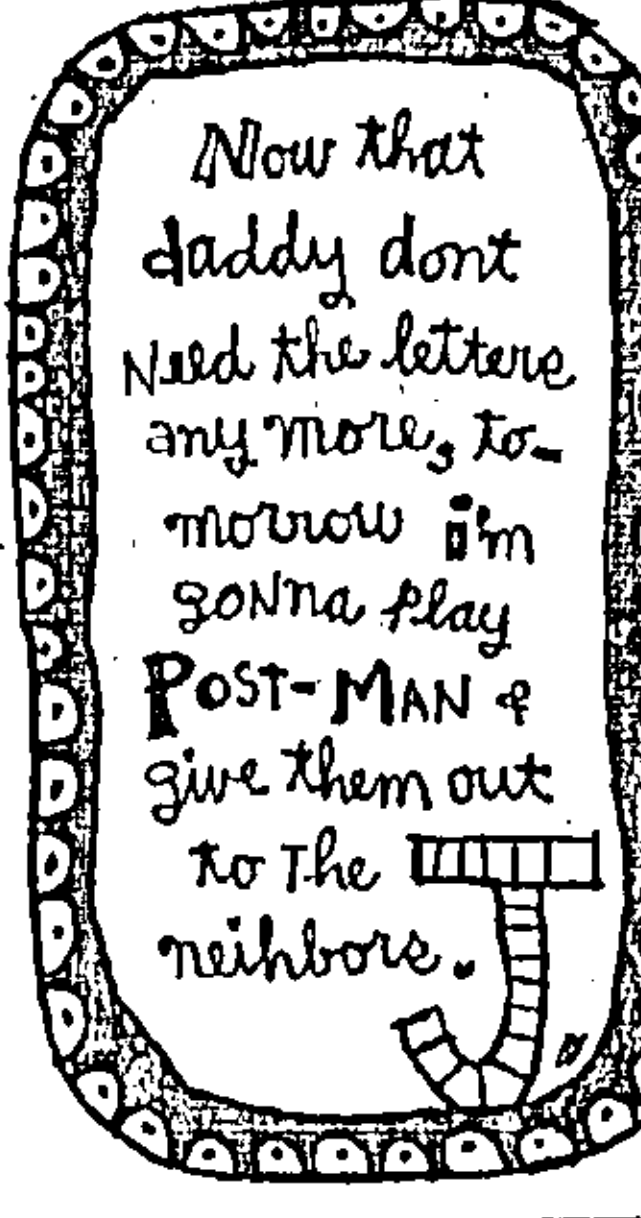 Now that
daddy dont
Need the letters
any more, to-
morrow i'm
goNna play
POST-MAN &
give them out
to The
neihbors.
J